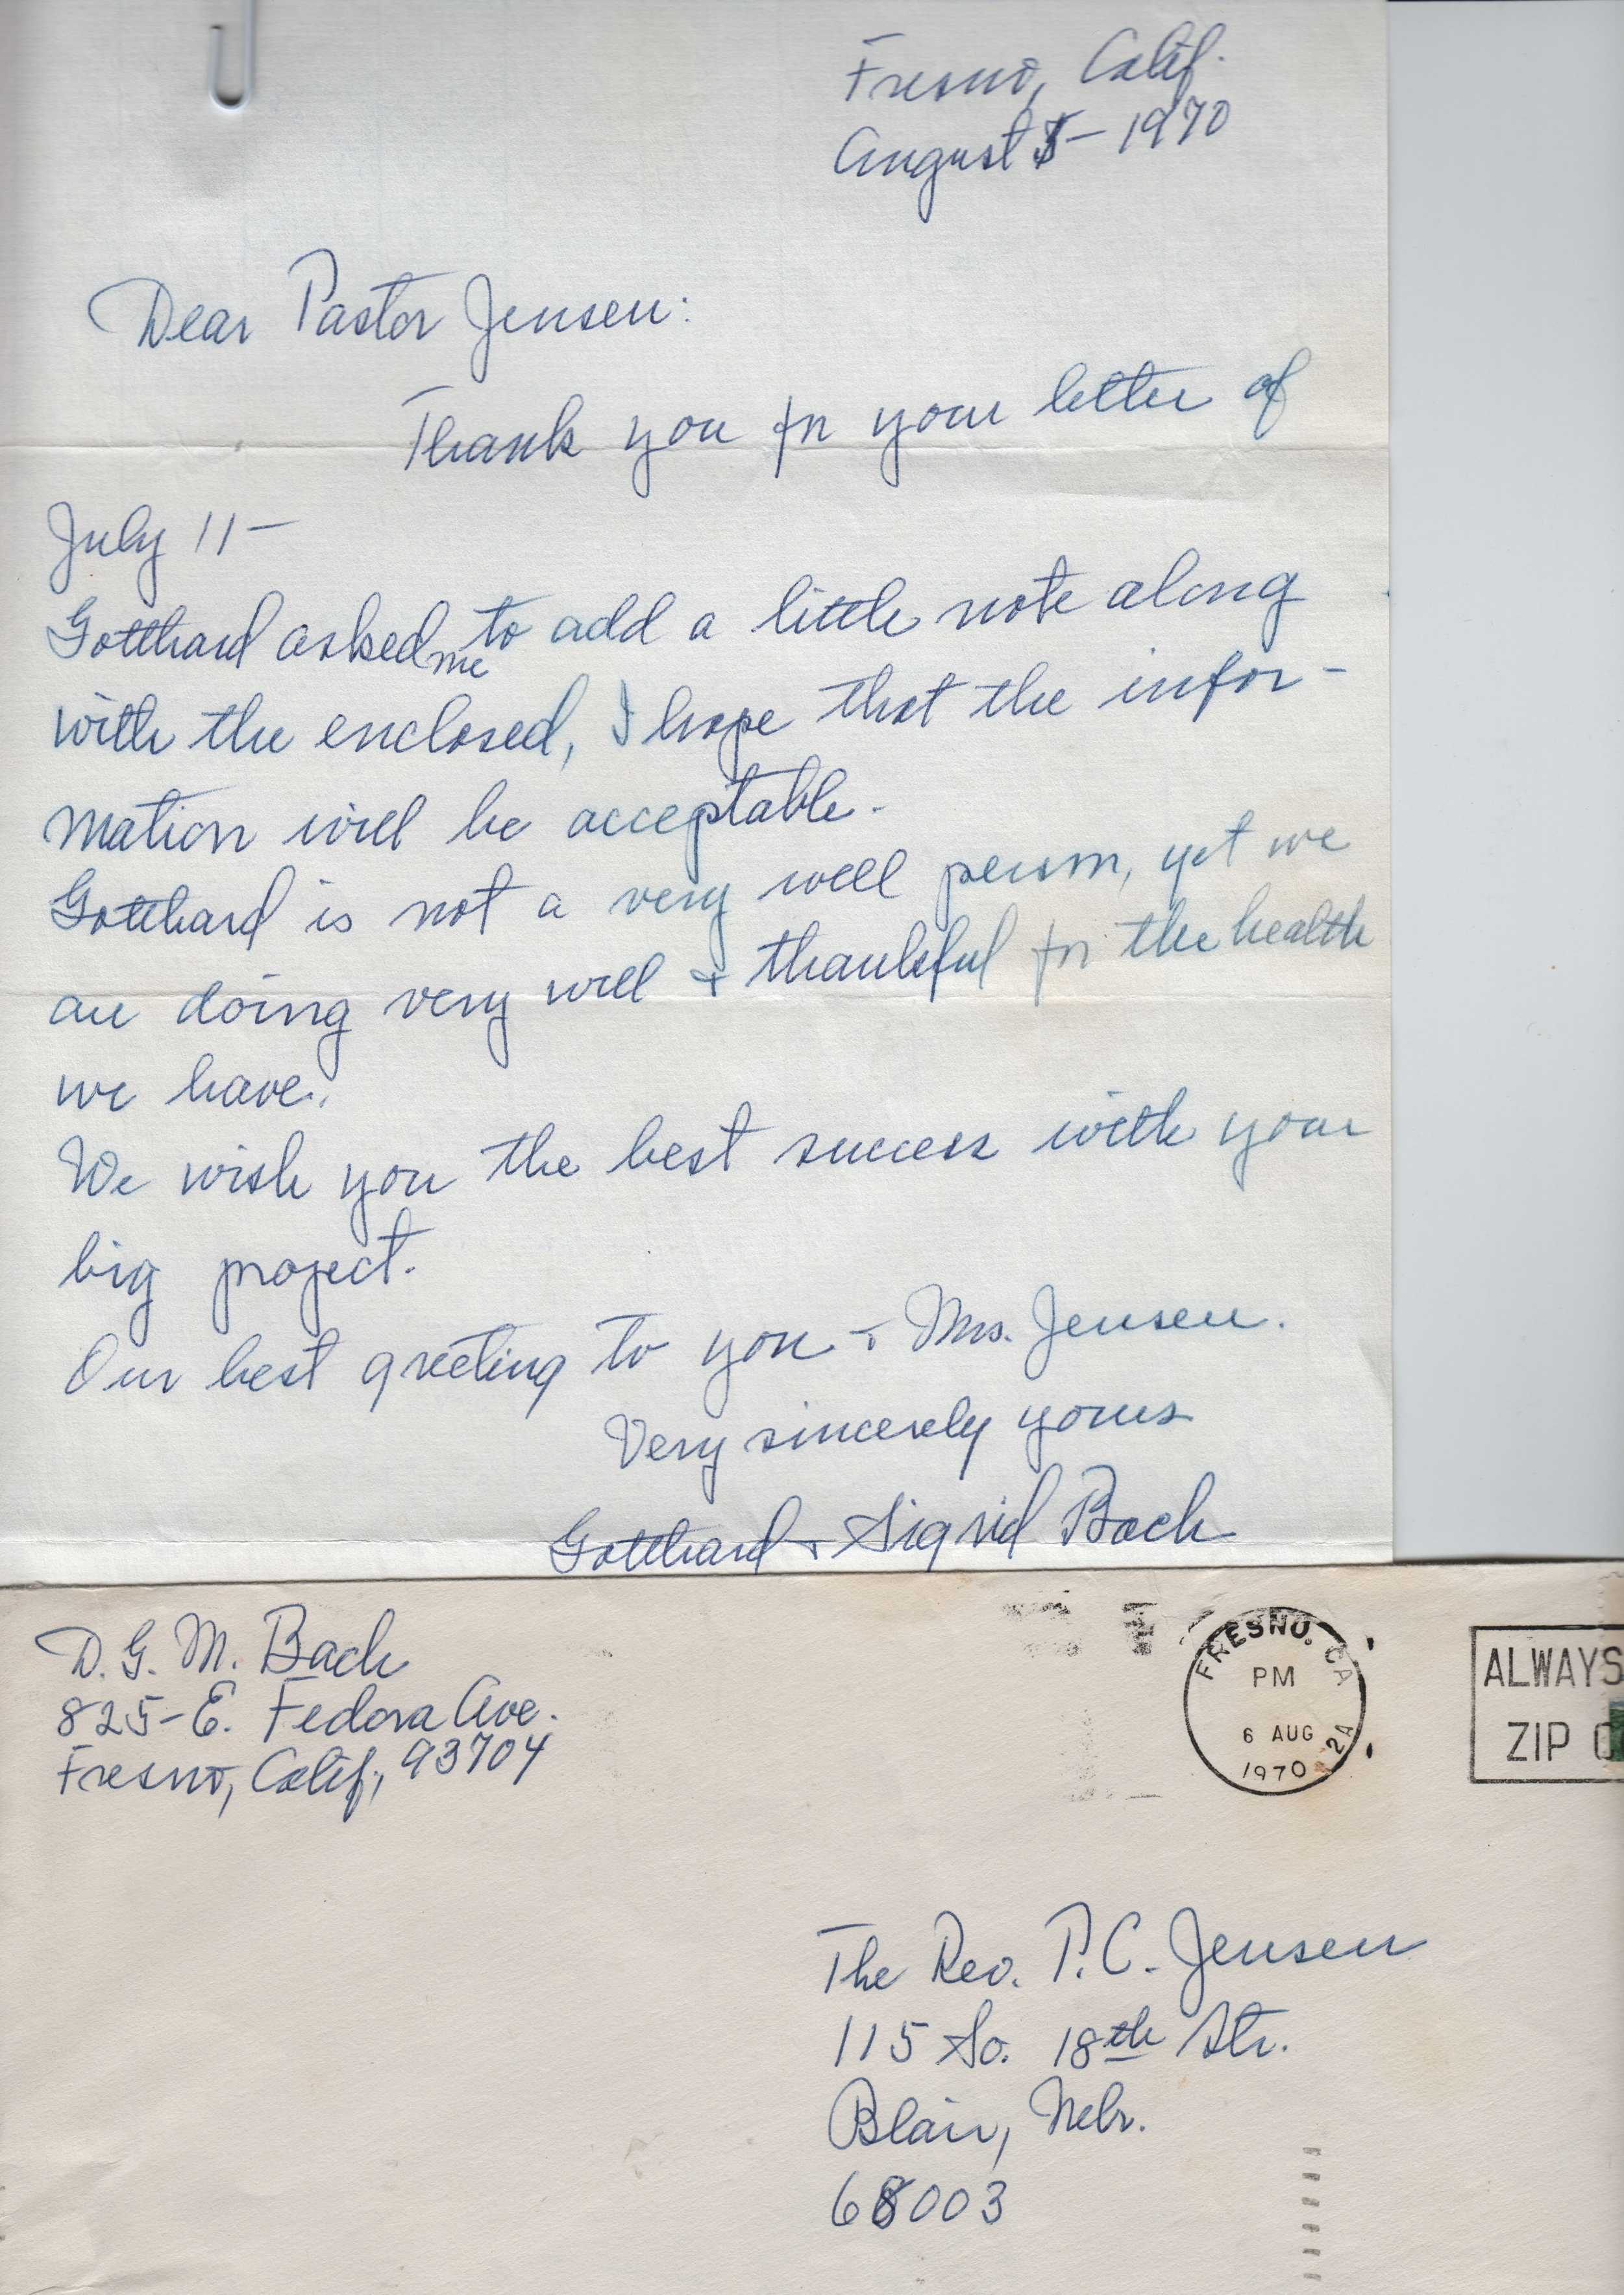 Fresno, Calif.
August 5 - 1970
Dear Pastor Jensen:
Thank you for your letter of
July 11 -
Gotthard asked me to add a little note along
with the enclosed, I hope that the infor-
mation will be acceptable.
Gotthard is not a very well person, yet we
are doing very well + thankful for the health
we have.
We wish you the best success with your
big project.
Our best greeting to you + Mrs. Jensen.
Very sincerely yours
Gotthard + Sigrid Bach
D. G. M. Bach
825 - E. Fedora Ave.
Fresno, Calif., 93704
FRESNO, CA
PM
6 AUG
1970
2A
ALWAYS
ZIP
The Rev. P. C. Jensen
115 So. 18th Str.
Blair, Nebr.
68003